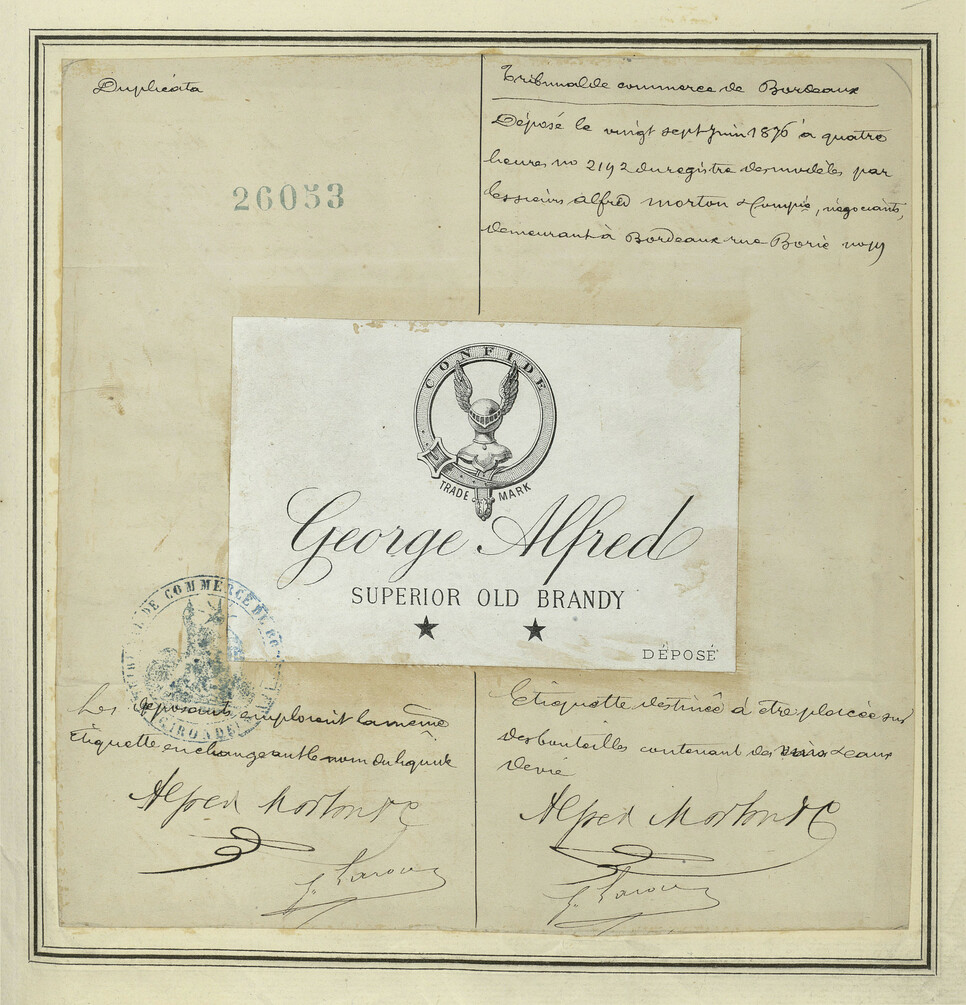 Duplicata
26053
Tribunal de commerce de Bordeaux
Déposé le vingt sept Juin 1876 à quatre
heures no 2192 du registre des modèles par
les sieurs Alfred Morton & Compie, négociants,
demeurant à Bordeaux rue Borie no 19
CONFIDE
TRADE MARK
George Alfred
SUPERIOR OLD BRANDY
DÉPOSÉ
TRIBUNAL DE COMMERCE DE
GIRONDE
Les déposants emploient la même
Etiquette en changeant le nom du liquide
Alfred Morton & C
Etiquette destinée à être placée sur
des bouteilles contenant des vins & eaux
de vie
Alfred Morton & C